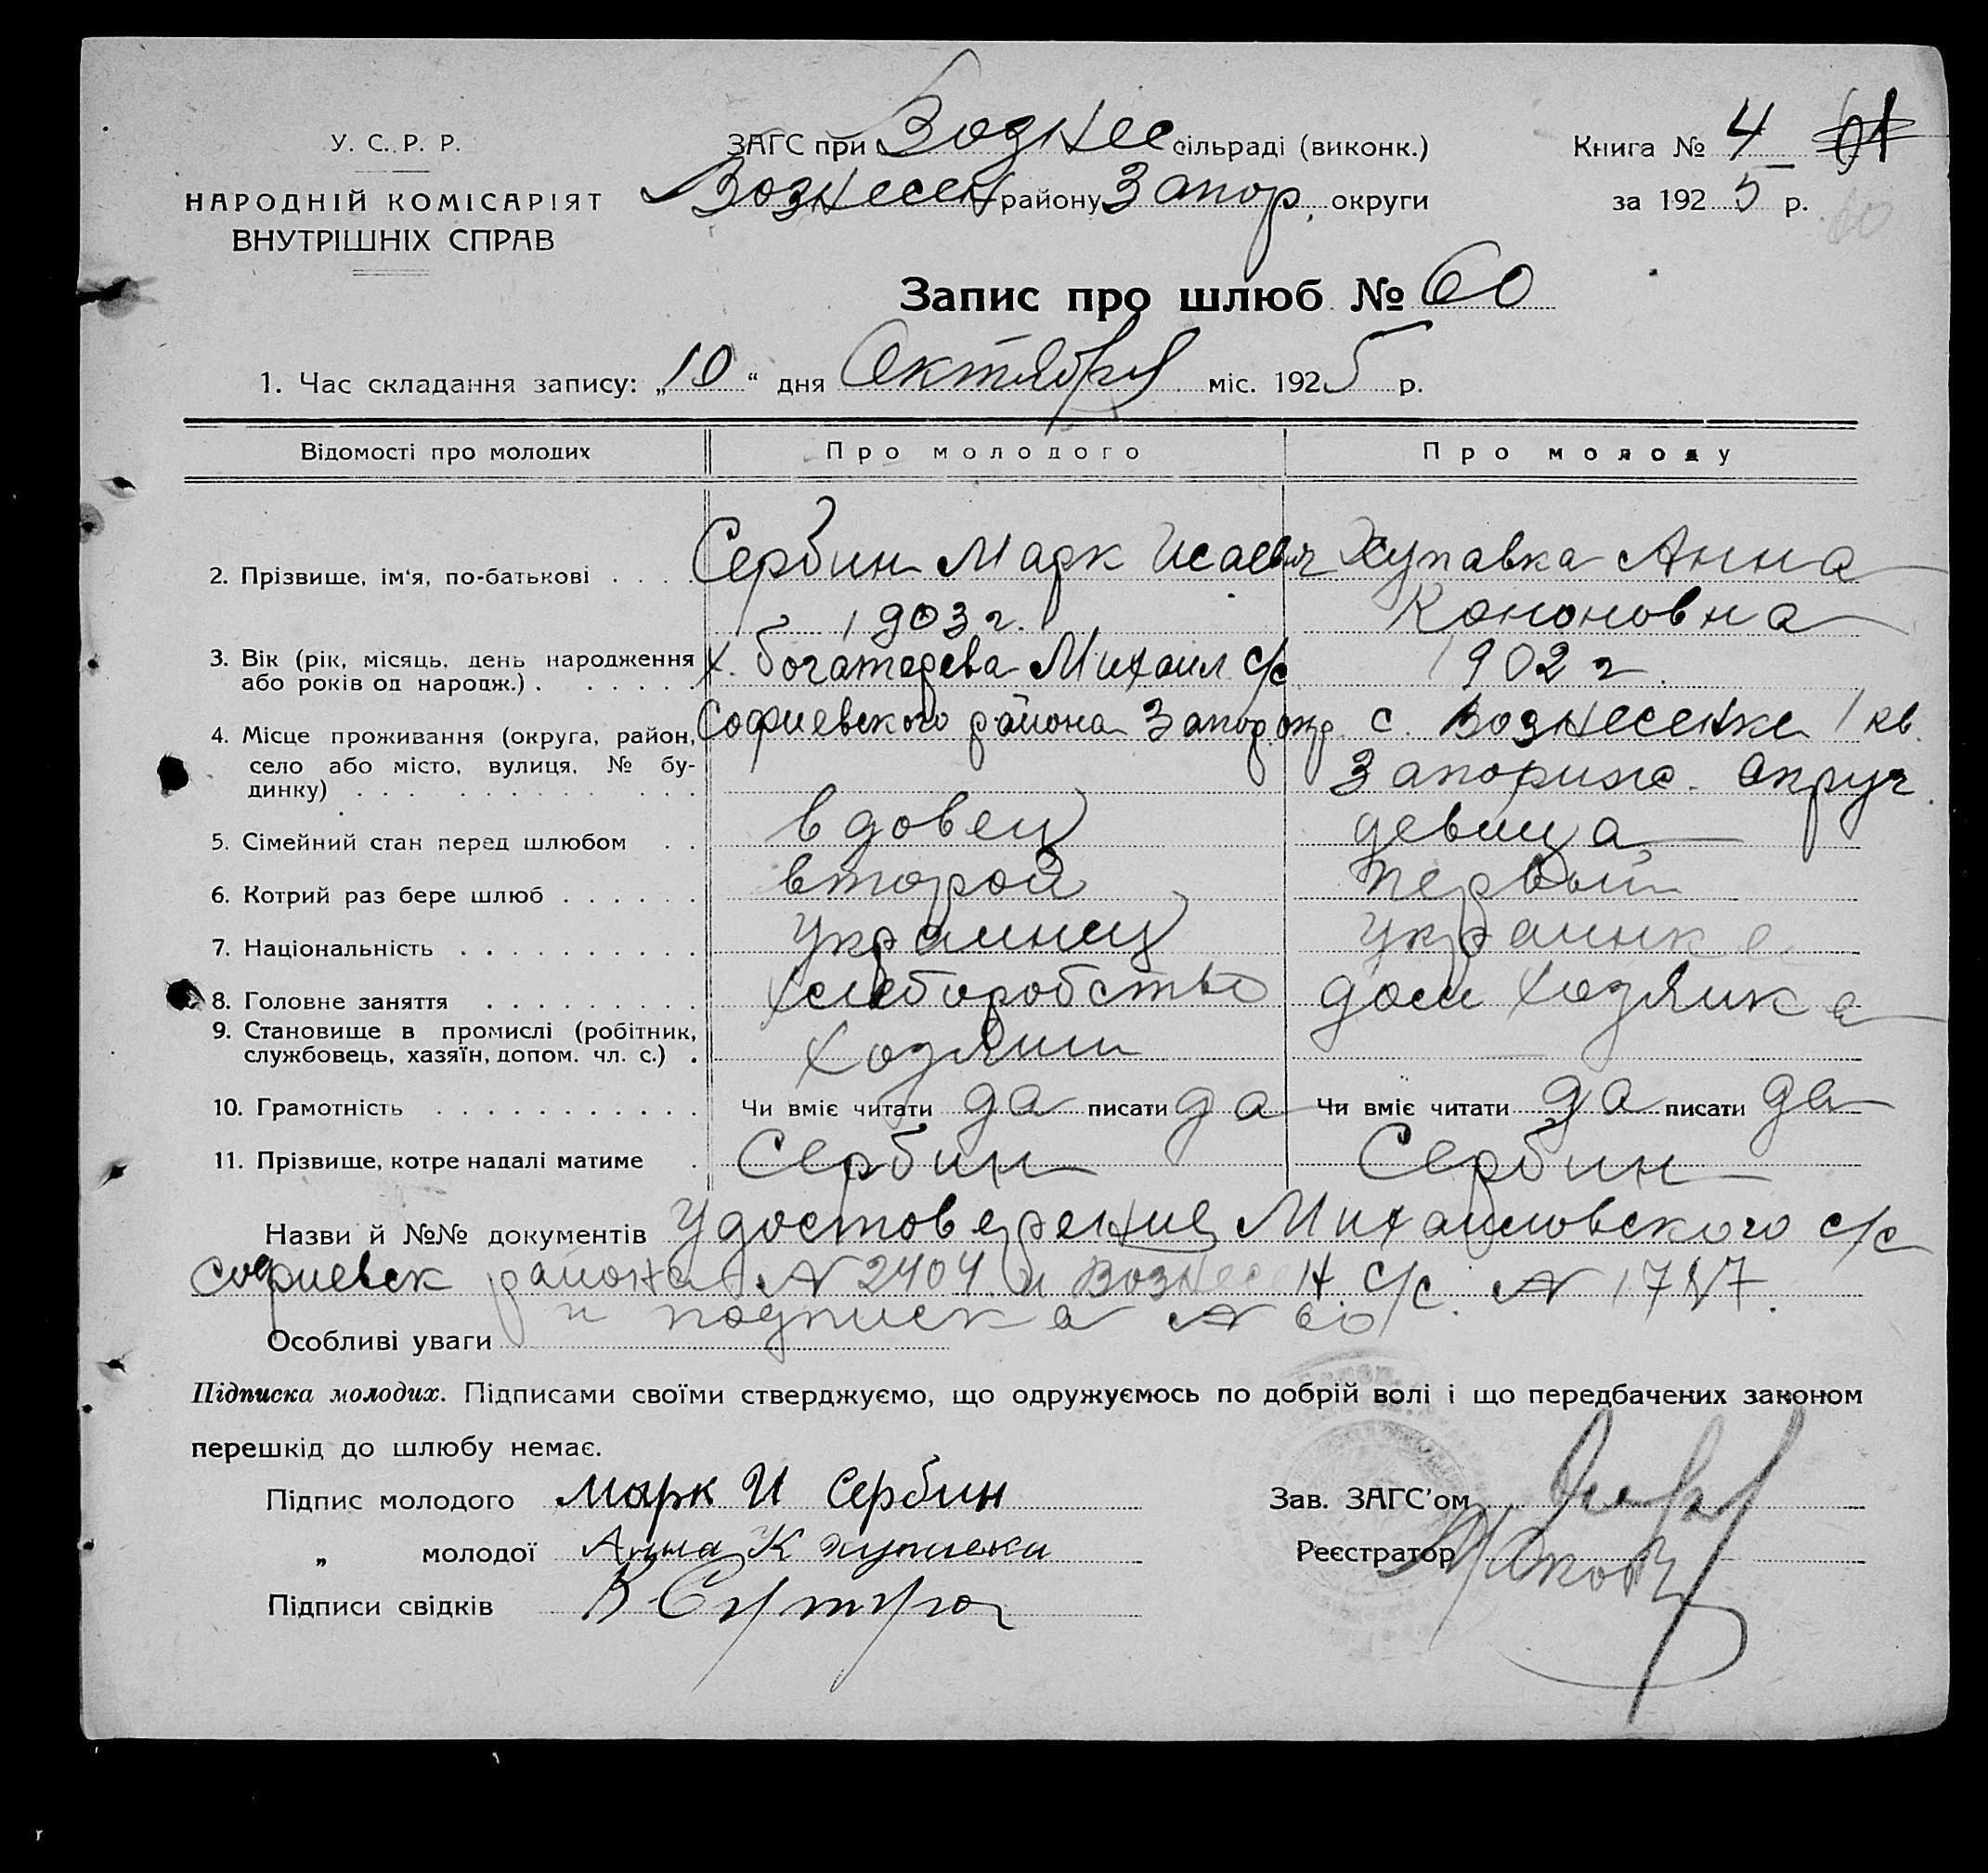 У. С. Р. Р.
НАРОДНІЙ КОМІСАРІЯТ
ВНУТРІШНІХ СПРАВ
ЗАГС при Вознес сільраді (виконк.)
Вознесен району Запор. округи
Книга № 4
за 1925 р.
60
Запис про шлюб № 60
1. Час складання запису: „10“ дня Октября міс. 1925 р.
Відомості про молодих Про молодого Про молоду
2. Прізвище, ім'я, по-батькові . . . . Сербин Марк Исаевич Хупавка Анна
Кононовна
3. Вік (рік, місяць, день народження або років од народж.) . . . . . . . 1903 г. 1902 г.
4. Місце проживання (округа, район, село або місто, вулиця, № будинку) . . . . . . . . . . . . .
х. Богатерева Михаил с/с
Софиевского района Запор. окр.
с. Вознесенке 1 кв.
Запориж. округ.
5. Сімейний стан перед шлюбом . . вдовец девица
6. Котрий раз бере шлюб . . . . . . второй первый
7. Національність . . . . . . . . . . украинец украинка
8. Головне заняття . . . . . . . . . хлеборобство дом хозяика
9. Становище в промислі (робітник, службовець, хазяїн, допом. чл. с.) . хозяин —
10. Грамотність . . . . . . . . . . . Чи вміє читати да писати да Чи вміє читати да писати да
11. Прізвище, котре надалі матиме . Сербин Сербин
Назви й №№ документів Удостоверение Михаиловского с/с
Софиевск района № 2404 и Вознесен с/с. №
и подписка № 60
Особливі уваги
Підписка молодих. Підписами своїми стверджуємо, що одружуємось по добрій волі і що передбачених законом
перешкід до шлюбу немає.
Підпис молодого Марк И Сербин
„ молодої Анна К Хупавка
Підписи свідків
Зав. ЗАГС'ом
Реєстратор